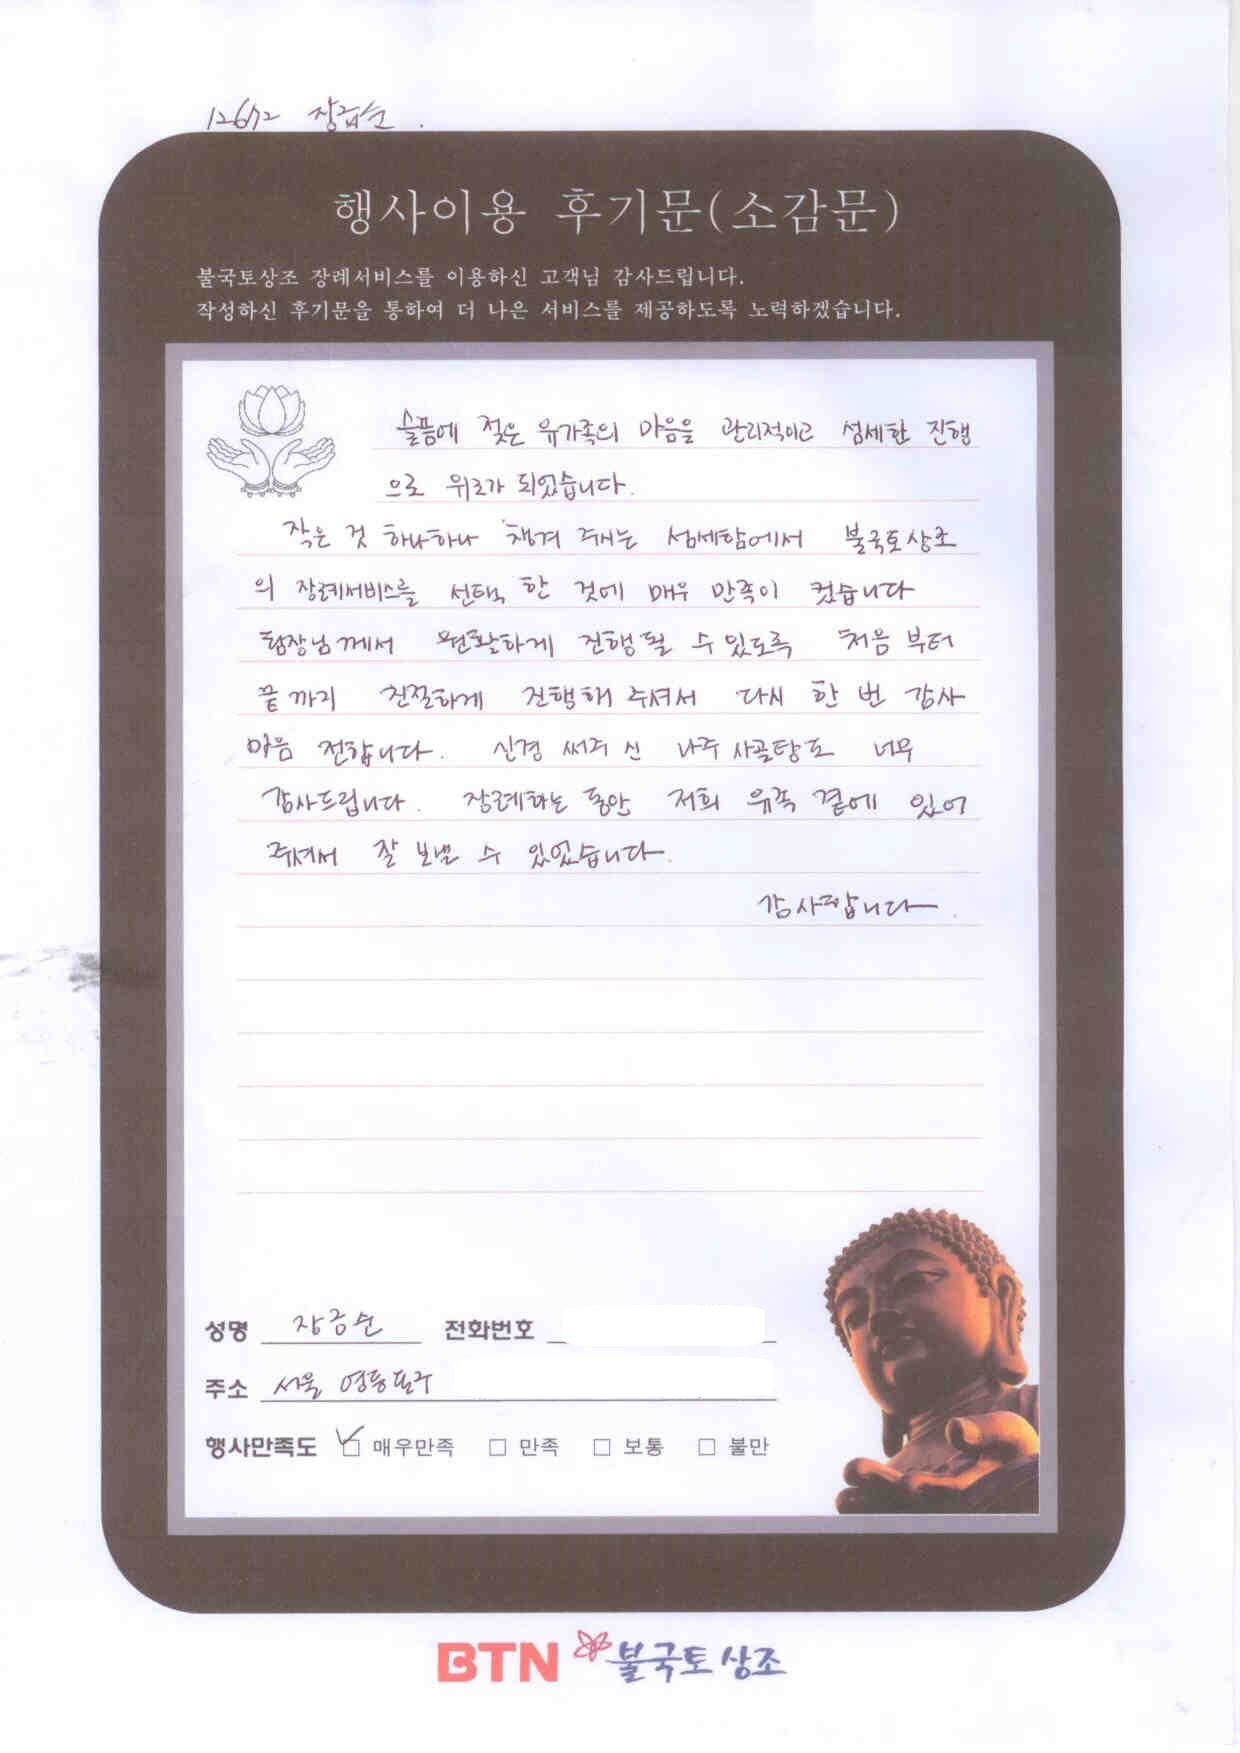 12672 장금순.
행사이용 후기문(소감문)
불국토상조 장례서비스를 이용하신 고객님 감사드립니다.
작성하신 후기문을 통하여 더 나은 서비스를 제공하도록 노력하겠습니다.
슬픔에 젖은 유가족의 마음을 관리적이고 섬세한 진행
으로 위로가 되었습니다.
작은 것 하나하나 챙겨 주시는 섬세함에서 불국토상조
의 장례서비스를 선택 한 것에 매우 만족이 컸습니다
팀장님께서 원활하게 진행될 수 있도록 처음 부터
끝까지 친절하게 진행해 주셔서 다시 한 번 감사
마음 전합니다. 신경 써주신 나주사골탕도 너무
감사드립니다. 장례하는 동안 저희 유족 곁에 있어
주셔서 잘 보낼 수 있었습니다.
감사합니다.
성명 장금순 전화번호
주소 서울 영등포구
행사만족도 ☑ 매우만족 □ 만족 □ 보통 □ 불만
BTN 불국토상조